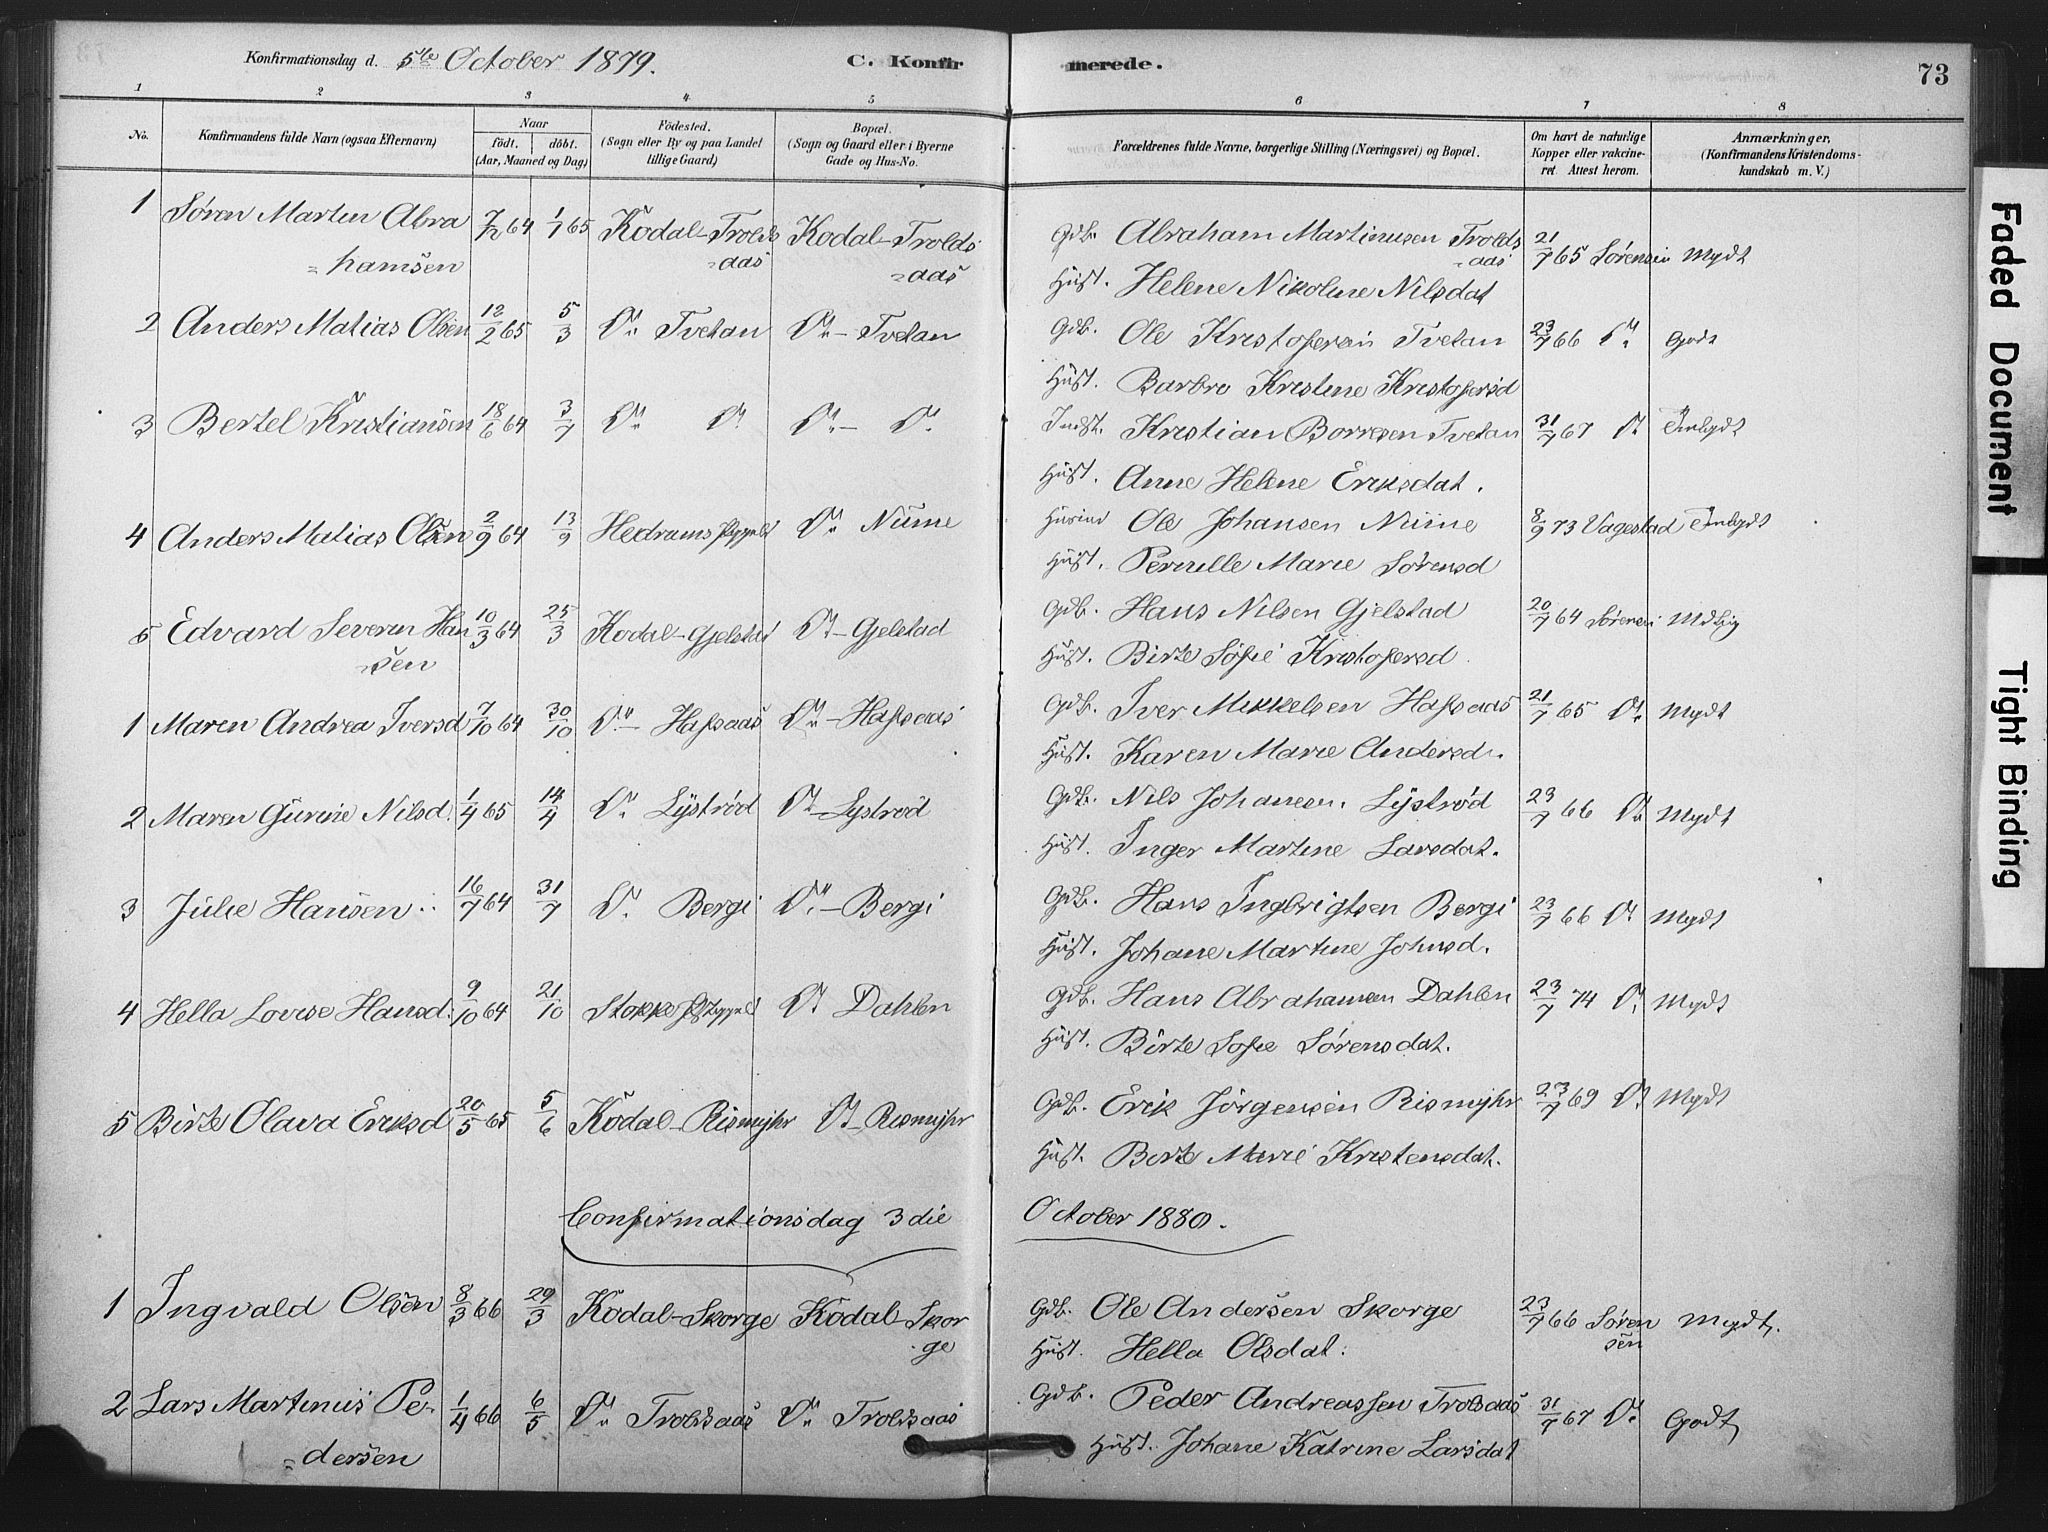 Konfirmationsdag d. 5te October 1879. C. Konfirmerede. 73
1 2 3 4 5 6 7 8
No. Konfirmandens fulde Navn (ogsaa Efternavn) Naar født. døbt. (Aar, Maaned og Dag) Fødested. (Sogn eller By og paa Landet tillige Gaard) Bopæl. (Sogn og Gaard eller i Byerne Gade og Hus-No. Forældrenes fulde Navne, borgerlige Stilling (Næringsvei) og Bopæl. Om havt de naturlige Kopper eller vakcineret Attest herom. Anmærkninger, (Konfirmandens Kristendomskundskab m. V.)
1 Søren Martin Abra 7/12 64 1/1 65 Kodal-Trolds Kodal-Trolds Gdb. Abraham Martinusen Trolds 21/7 65 Sørensen Mgdt
=hamsen =aas =aas =aas
Hust. Helene Nikoline Nilsdat
2 Anders Matias Olsen 12/2 65 5/3 Do Tvetan Do-Tvetan Gdb. Ole Kristofersen Tvetan 23/7 66 Do Godt
Hust. Barbro Kristine Kristofersd
3 Bertel Kristiansen 18/6 64 3/7 Do Do Do- Do Indst. Kristian Borresen Tvetan 31/7 67 Do Tmlgdt
Hust. Anne Helene Eriksdat.
4 Anders Matias Olsen 2/9 64 13/9 Hedrums Do Nume Ole Johansen Nume 8/9 73 Vagestad Tmlgdt
Hust. Pernille Marie Sørensd
5 Edvard Severin Han 10/3 64 25/3 Kodal-Gjelstad Do-Gjelstad Gdb. Hans Nilsen Gjelstad 20/7 64 Sørensen
=sen Hust. Birte Sofie Kristofersd
1 Maren Andrea Iversd 7/10 64 30/10 Do-Hafsaas Do-Hafsaas Gdb. Iver Mikkelsen Hafsaas 21/7 65 Do Mgdt
Hust. Karen Marie Andersd.
2 Maren Gurine Nilsd. 1/4 65 14/4 Do Lystrød Do-Lystrød Gdb. Nils Johansen Lystrød 23/7 66 Do Mgdt
Hust. Inger Martine Larsdat.
3 Julie Hansen 16/7 64 31/7 Do Bergi Do-Bergi Gdb. Hans Ingbrigtsen Bergi 23/7 66 Do Mgdt
Hust. Johane Martine Johnsd.
4 Hella Lovise Hansd. 9/10 64 21/10 Stokke Do Dahlen Gdb. Hans Abrahamsen Dahlen 23/7 74 Do Mgdt
Hust. Birte Sofie Sørensdat.
5 Birte Olava Eriksd 20/5 65 5/6 Kodal-Rismyhr Do-Rismyhr Gdb. Erik Jørgensen Rismyhr 23/7 69 Do Mgdt
Hust. Berte Marie Kristensdat.
Confirmationsdag 3die October 1880.
1 Ingvald Olsen 8/3 66 29/3 Kodal-Skorge Kodal-Skor Gdb. Ole Andersen Skorge 23/7 66 Søren Mgdt.
ge Hust. Hella Olsdat. sen
2 Lars Martinus Pe- 1/4 66 6/5 Do Troldsaas Do Troldsaas Gdb. Peder Andreassen Trolsaas 31/7 67 Do Godt
=dersen Hust. Johane Katrine Larsdat
Faded Document
Tight Binding